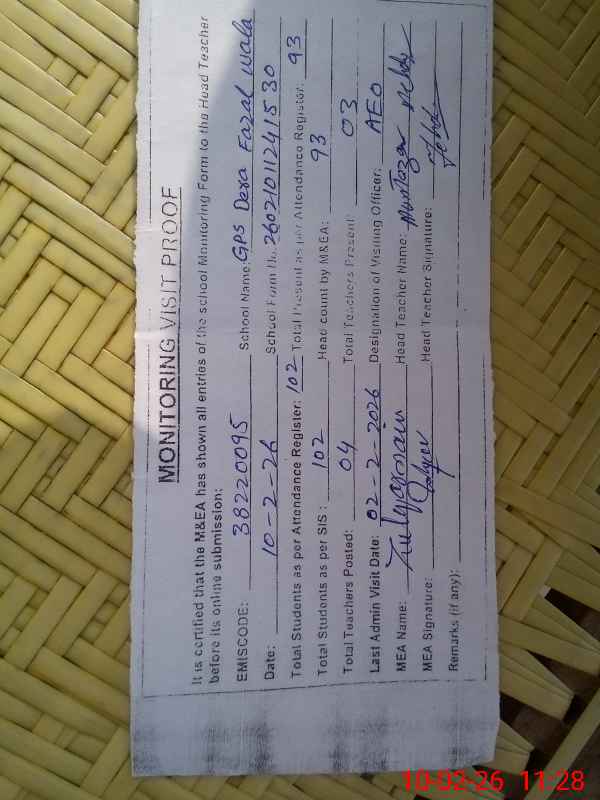 MONITORING VISIT PROOF
It is certified that the M&EA has shown all entries of the school Monitoring Form to the Head Teacher
before its online submission:
EMISCODE: 38220095 School Name: GPS Dera Fazal Wala
Date: 10-2-26 School Form No. 26021011241530
Total Students as per Attendance Register: 102 Total Present as per Attendance Register: 93
Total Students as per SIS: 102 Head count by M&EA: 93
Total Teachers Posted: 04 Total Teachers Present: 03
Last Admin Visit Date: 02-2-2026 Designation of Visiting Officer: AEO
MEA Name: Head Teacher Name:
MEA Signature: Head Teacher Signature:
Remarks (if any):
10-02-26 11:28